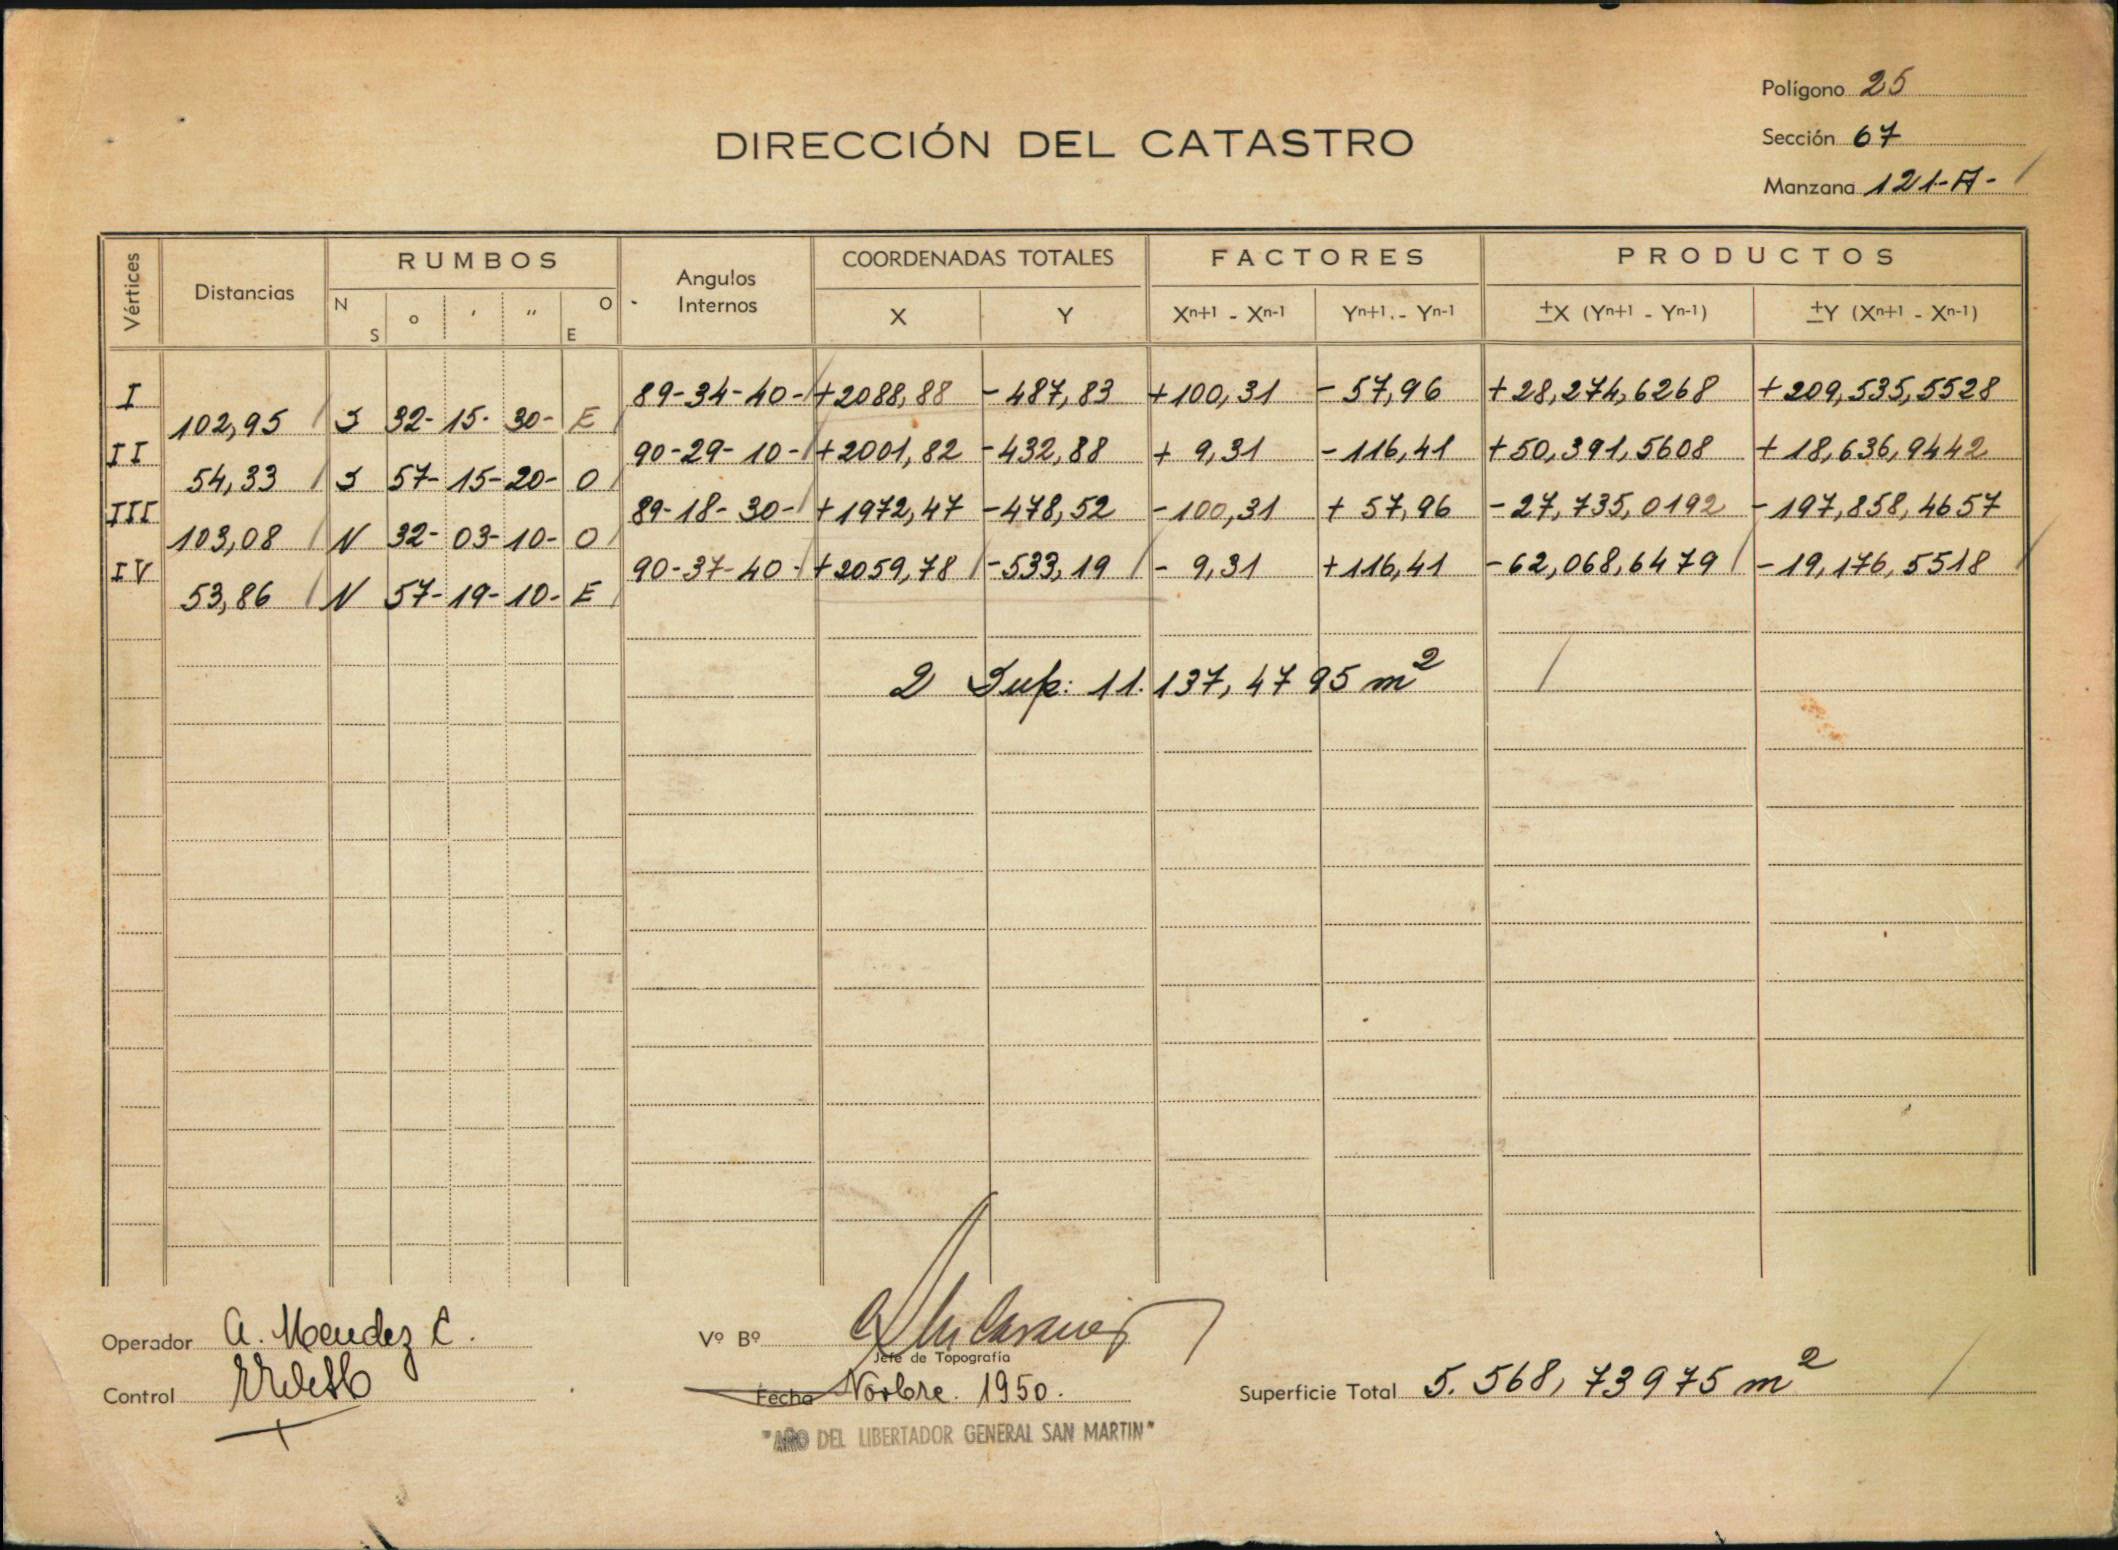 Polígono 25
DIRECCIÓN DEL CATASTRO
Sección 67
Manzana 121-A-
Vértices Distancias RUMBOS Angulos Internos COORDENADAS TOTALES FACTORES PRODUCTOS
N S o ' " O E X Y Xn+1 - Xn-1 Yn+1 - Yn-1 ±X (Yn+1 - Yn-1) ±Y (Xn+1 - Xn-1)
I 89-34-40- +2088,88 -487,83 +100,31 -57,96 +28,274,6268 +209,535,5528
102,95 S 32-15-30- E
II 90-29-10- +2001,82 -432,88 + 9,31 -116,41 +50,391,5608 +18,636,9442
54,33 S 57-15-20- O
III 89-18-30- +1972,47 -478,52 -100,31 +57,96 -27,735,0192 -197,858,4657
103,08 N 32-03-10- O
IV 90-37-40- +2059,78 -533,19 - 9,31 +116,41 -62,068,6479 -19,176,5518
53,86 N 57-19-10- E
2 Sup: 11.137,4795 m2
Operador A. Mendez C. Vº Bº
Jefe de Topografía
Control Fecha Novbre. 1950. Superficie Total 5.568,73975 m2
"AÑO DEL LIBERTADOR GENERAL SAN MARTIN"